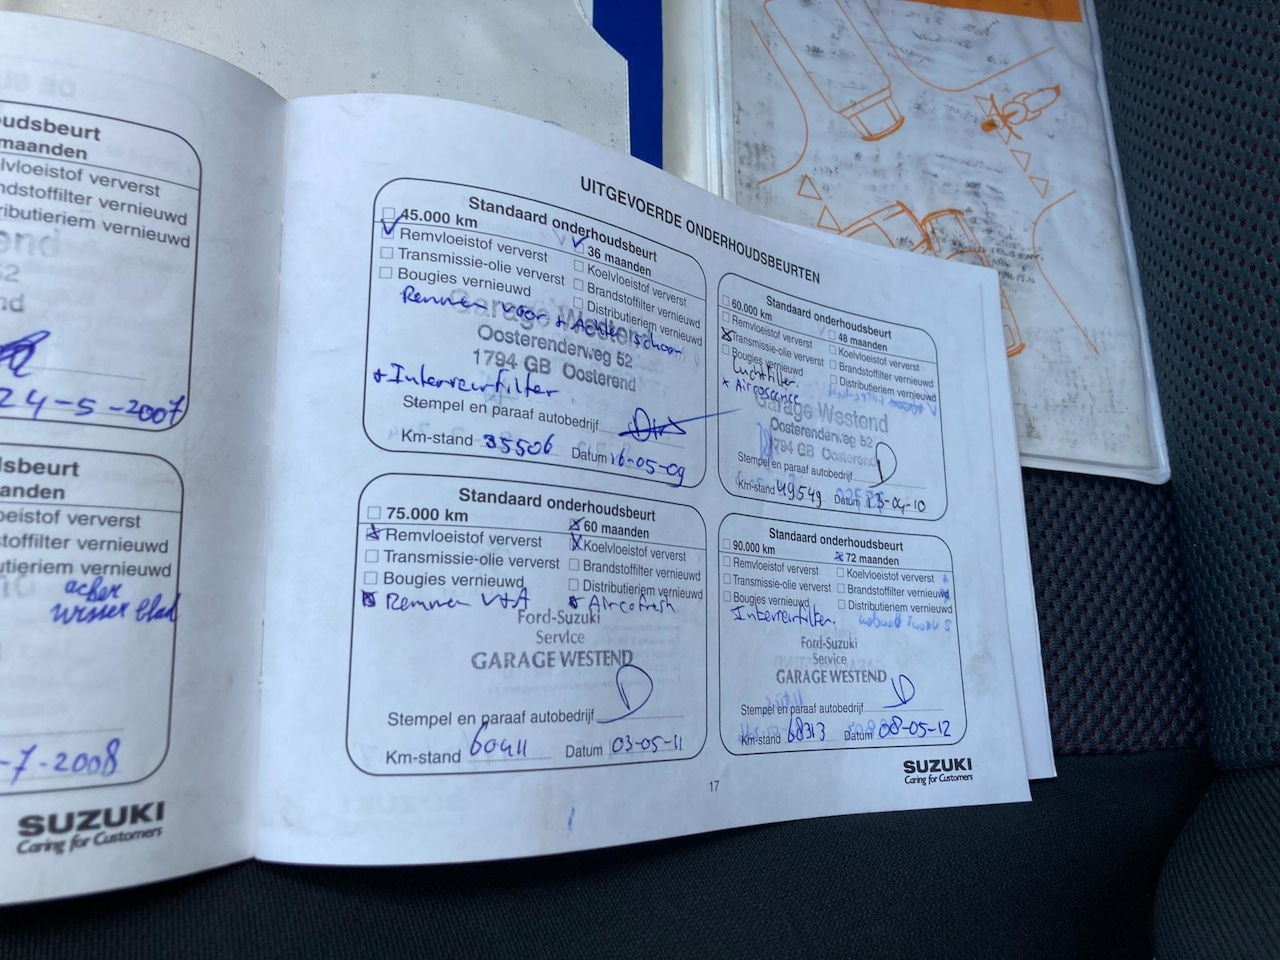 oudsbeurt
maanden
elvloeistof ververst
ndstoffilter vernieuwd
tributieriem vernieuwd
end
52
nd
24-5-2007
dsbeurt
anden
oeistof ververst
toffilter vernieuwd
utieriem vernieuwd
wisser blad
-7-2008
SUZUKI
Caring for Customers
UITGEVOERDE ONDERHOUDSBEURTEN
Standaard onderhoudsbeurt
45.000 km
36 maanden
Remvloeistof ververst
Koelvloeistof ververst
Transmissie-olie ververst
Brandstoffilter vernieuwd
Bougies vernieuwd
Distributieriem vernieuwd
Remmen voor + Achter schoon
Garage Westend
Oosterenderweg 52
1794 GB Oosterend
+ Interieurfilter
Stempel en paraaf autobedrijf
Km-stand 35506 Datum 16-05-09
Standaard onderhoudsbeurt
60.000 km
48 maanden
Remvloeistof ververst
Koelvloeistof ververst
Transmissie-olie ververst
Brandstoffilter vernieuwd
Bougies vernieuwd
Distributieriem vernieuwd
Luchtfilter.
Garage Westend
Oosterenderweg 52
1794 GB Oosterend
Stempel en paraaf autobedrijf
Km-stand 49549 Datum 13-04-10
Standaard onderhoudsbeurt
75.000 km
60 maanden
Remvloeistof ververst
Koelvloeistof ververst
Transmissie-olie ververst
Brandstoffilter vernieuwd
Bougies vernieuwd
Distributieriem vernieuwd
Remmen V+A
Aircofresh
Ford-Suzuki
Service
GARAGE WESTEND
Stempel en paraaf autobedrijf
Km-stand 60411 Datum 03-05-11
Standaard onderhoudsbeurt
90.000 km
72 maanden
Remvloeistof ververst
Koelvloeistof ververst
Transmissie-olie ververst
Brandstoffilter vernieuwd
Bougies vernieuwd
Distributieriem vernieuwd
Interieurfilter.
Ford-Suzuki
Service
GARAGE WESTEND
Stempel en paraaf autobedrijf
Km-stand 68313 Datum 08-05-12
17
SUZUKI
Caring for Customers